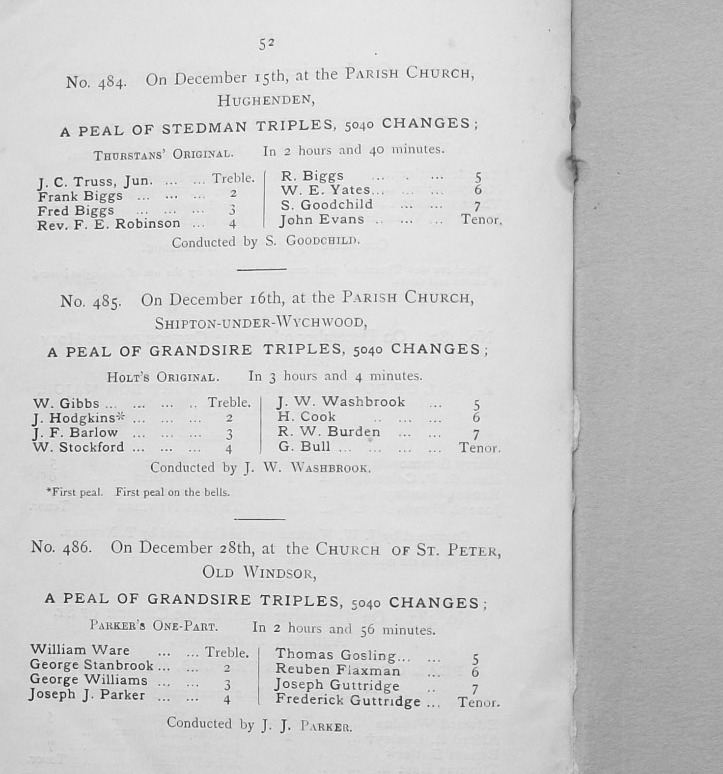 52
No. 484. On December 15th, at the Parish Church,
Hughenden,
A PEAL OF STEDMAN TRIPLES, 5040 CHANGES;
Thurstans' Original. In 2 hours and 40 minutes.
J. C. Truss, Jun. ... ... Treble. R. Biggs ... . ... 5
Frank Biggs ... ... ... 2 W. E. Yates... ... ... 6
Fred Biggs ... ... ... 3 S. Goodchild ... ... 7
Rev. F. E. Robinson ... 4 John Evans .. ... ... Tenor.
Conducted by S. Goodchild.
No. 485. On December 16th, at the Parish Church,
Shipton-under-Wychwood,
A PEAL OF GRANDSIRE TRIPLES, 5040 CHANGES;
Holt's Original. In 3 hours and 4 minutes.
W. Gibbs ... ... ... .. Treble. J. W. Washbrook ... 5
J. Hodgkins* ... ... ... 2 H. Cook .. ... ... 6
J. F. Barlow ... ... ... 3 R. W. Burden ... ... 7
W. Stockford ... ... ... 4 G. Bull ... ... ... ... Tenor.
Conducted by J. W. Washbrook.
*First peal. First peal on the bells.
No. 486. On December 28th, at the Church of St. Peter,
Old Windsor,
A PEAL OF GRANDSIRE TRIPLES, 5040 CHANGES;
Parker's One-Part. In 2 hours and 56 minutes.
William Ware ... ... Treble. Thomas Gosling... ... 5
George Stanbrook ... ... 2 Reuben Flaxman ... 6
George Williams ... ... 3 Joseph Guttridge .. 7
Joseph J. Parker ... ... 4 Frederick Guttridge ... Tenor.
Conducted by J. J. Parker.